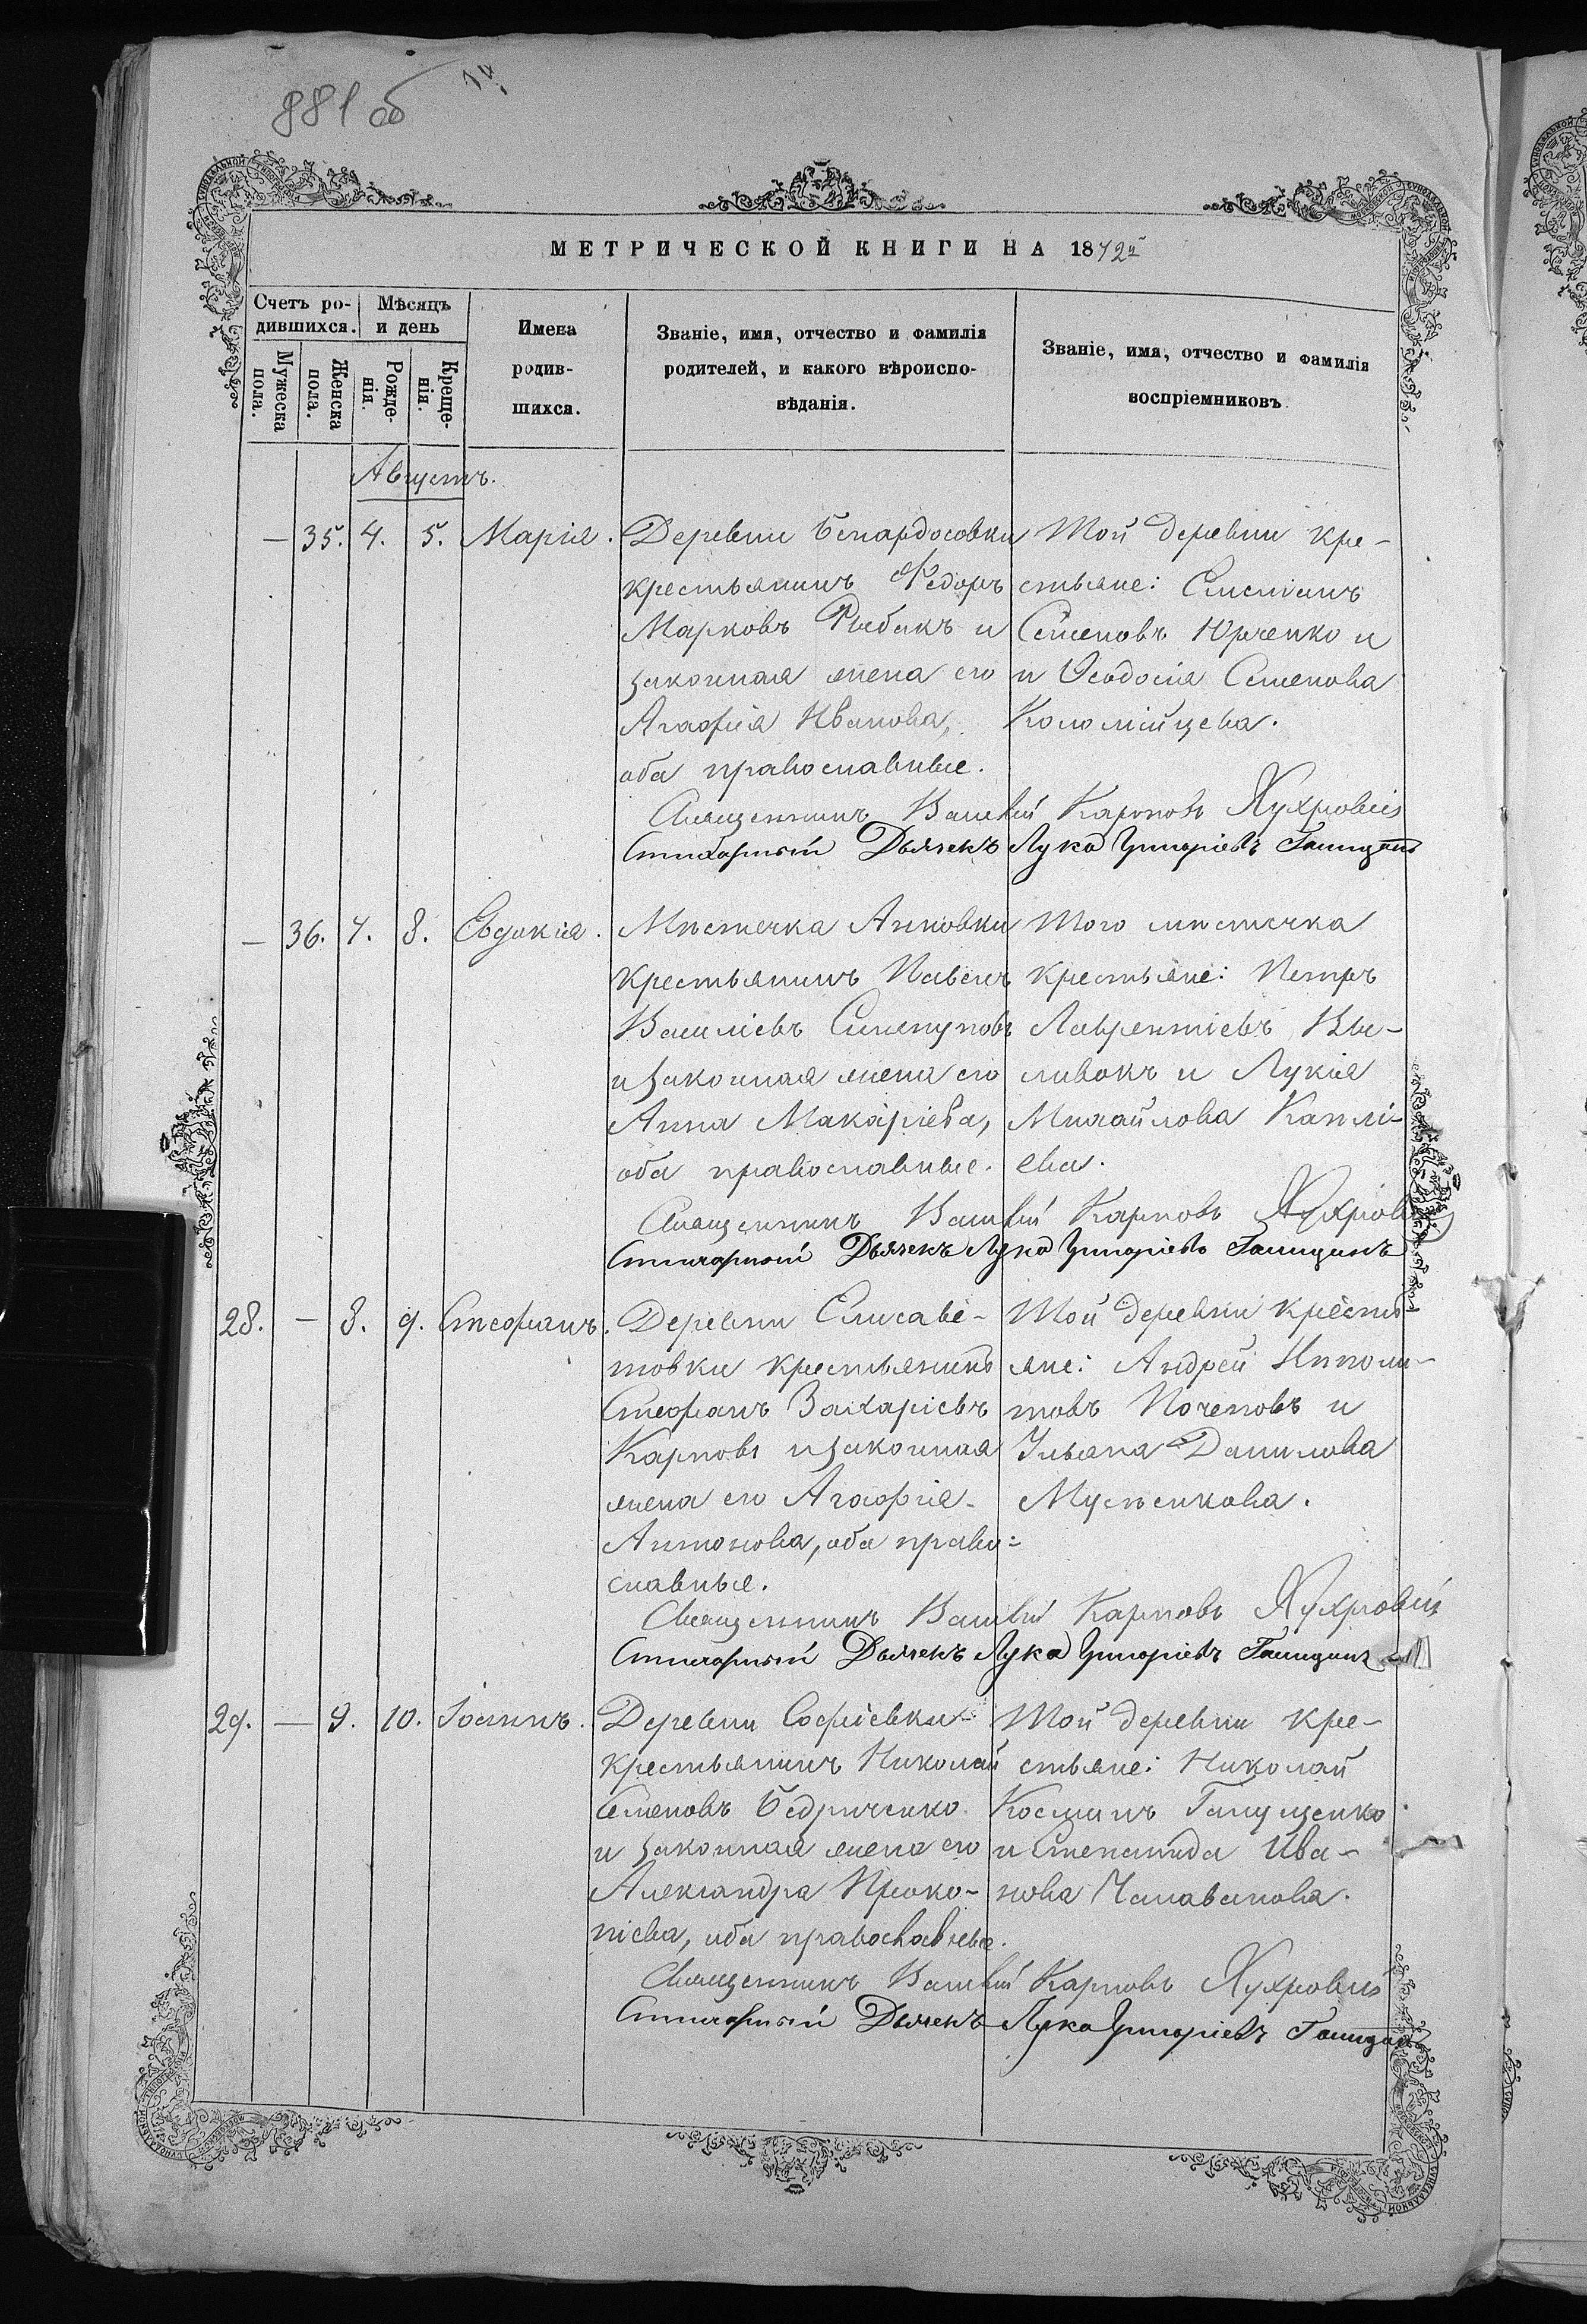 881 об
МЕТРИЧЕСКОЙ КНИГИ НА 1872й
Счетъ ро-
дившихся.
Мѣсяцъ
и день
Мужеска
пола.
Женска
пола.
Рожде-
нія.
Креще-
нія.
Имена
родив-
шихся.
Званіе, имя, отчество и фамилія
родителей, и какого вѣроиспо-
вѣданія.
Званіе, имя, отчество и фамилія
воспріемниковъ
Августъ.
— 35. 4. 5. Марія.
Деревни
крестьянинъ Ѳедоръ
Марковъ Рыбакъ и
законная жена его
Агафія Иванова,
оба православные.
Той деревни кре-
стьяне:
Семеновъ Юрченко и
и Ѳеодосія Семенова
Коломійцева.
Священникъ Василій Карповъ
Стихарный Дьячекъ Лука Григоріевъ
— 36. 7. 8. Евдокія.
Мѣстечка Анновки
крестьянинъ Павелъ
Василіевъ
и законная жена его
Анна Макаріева,
оба православные.
Того мѣстечка
крестьяне: Петръ
Лаврентіевъ
и Лукія
Михайлова
ева.
Священникъ Василій Карповъ
Стихарный Дьячекъ Лука Григоріевъ
28. — 8. 9. Стефанъ.
Деревни Елисаве-
товки крестьянинъ
Стефанъ Захаріевъ
Карповъ и законная
жена его Агафія
Антонова, оба право-
славные.
Той деревни кресть-
яне: Андрей Иполи-
товъ Поченовъ и
Ульяна Данилова
Священникъ Василій Карповъ
Стихарный Дьячекъ Лука Григоріевъ
29. — 9. 10. Іоаннъ.
Деревни Софіевки
крестьянинъ Николай
Семеновъ Бедриченко
и законная жена его
Александра Проко-
піева, оба православные.
Той деревни кре-
стьяне: Николай
Косминъ
и Степанида Ива-
нова
Священникъ Василій Карповъ
Стихарный Дьячекъ Лука Григоріевъ